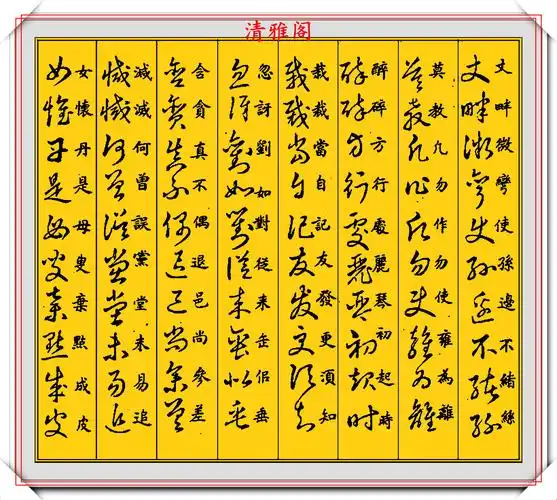 清雅阁
丈畔微彎使孫邊不緒絲
莫教凢勿作勿使雍為離
醉碎方行處麗琴初起時
栽裁當自記友發更須知
忽訝劉如對從来缶侣垂
含貪真不偶退邑尚參差
減滅何曾誤黨堂未易追
女懷丹是母叟棄點成皮